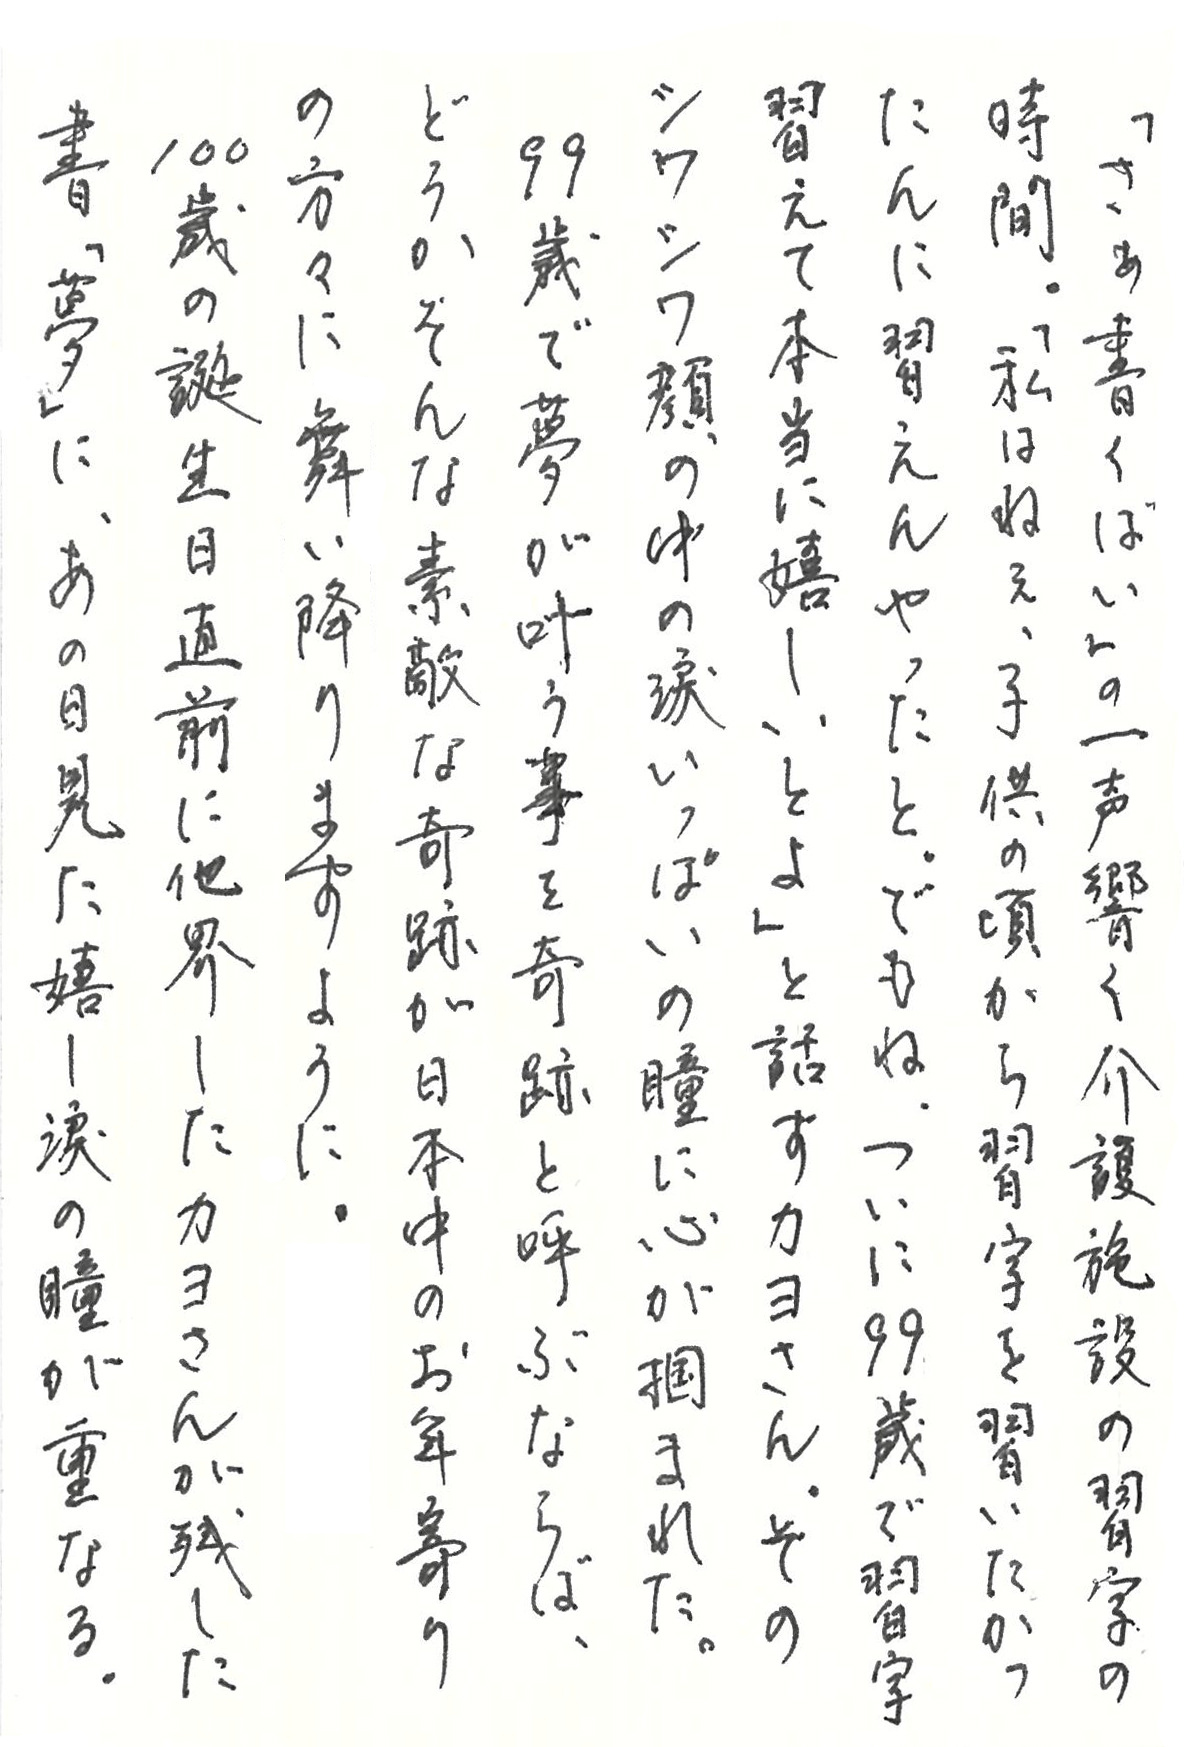 「さぁ書くばい」の一声響く介護施設の習字の
時間。「私はねぇ、子供の頃から習字を習いたかっ
たんに習えんやったと。でもね、ついに99歳で習字
習えて本当に嬉しいとよ」と話すカヨさん。その
シワシワ顔の中の涙いっぱいの瞳に心が掴まれた。
99歳で夢が叶う事を奇跡と呼ぶならば、
どうかそんな素敵な奇跡が日本中のお年寄り
の方々に舞い降りますように。
100歳の誕生日直前に他界したカヨさんが残した
書「夢」に、あの日見た嬉し涙の瞳が重なる。